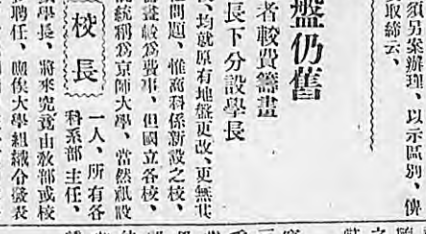 須另案辦理、以示區別、俾
取締云、
盤仍舊
者較費籌畫
長下分設學長
、均就原有地盤更改、更無其
問題、惟商科係新設之校、
籌畫較爲費事、但國立各校、
統稱爲京師大學、當然祇設
校長
一人、所有各
科系部主任、
學長、將來究竟由教部或校
聘任、嗣俟大學組織令發表